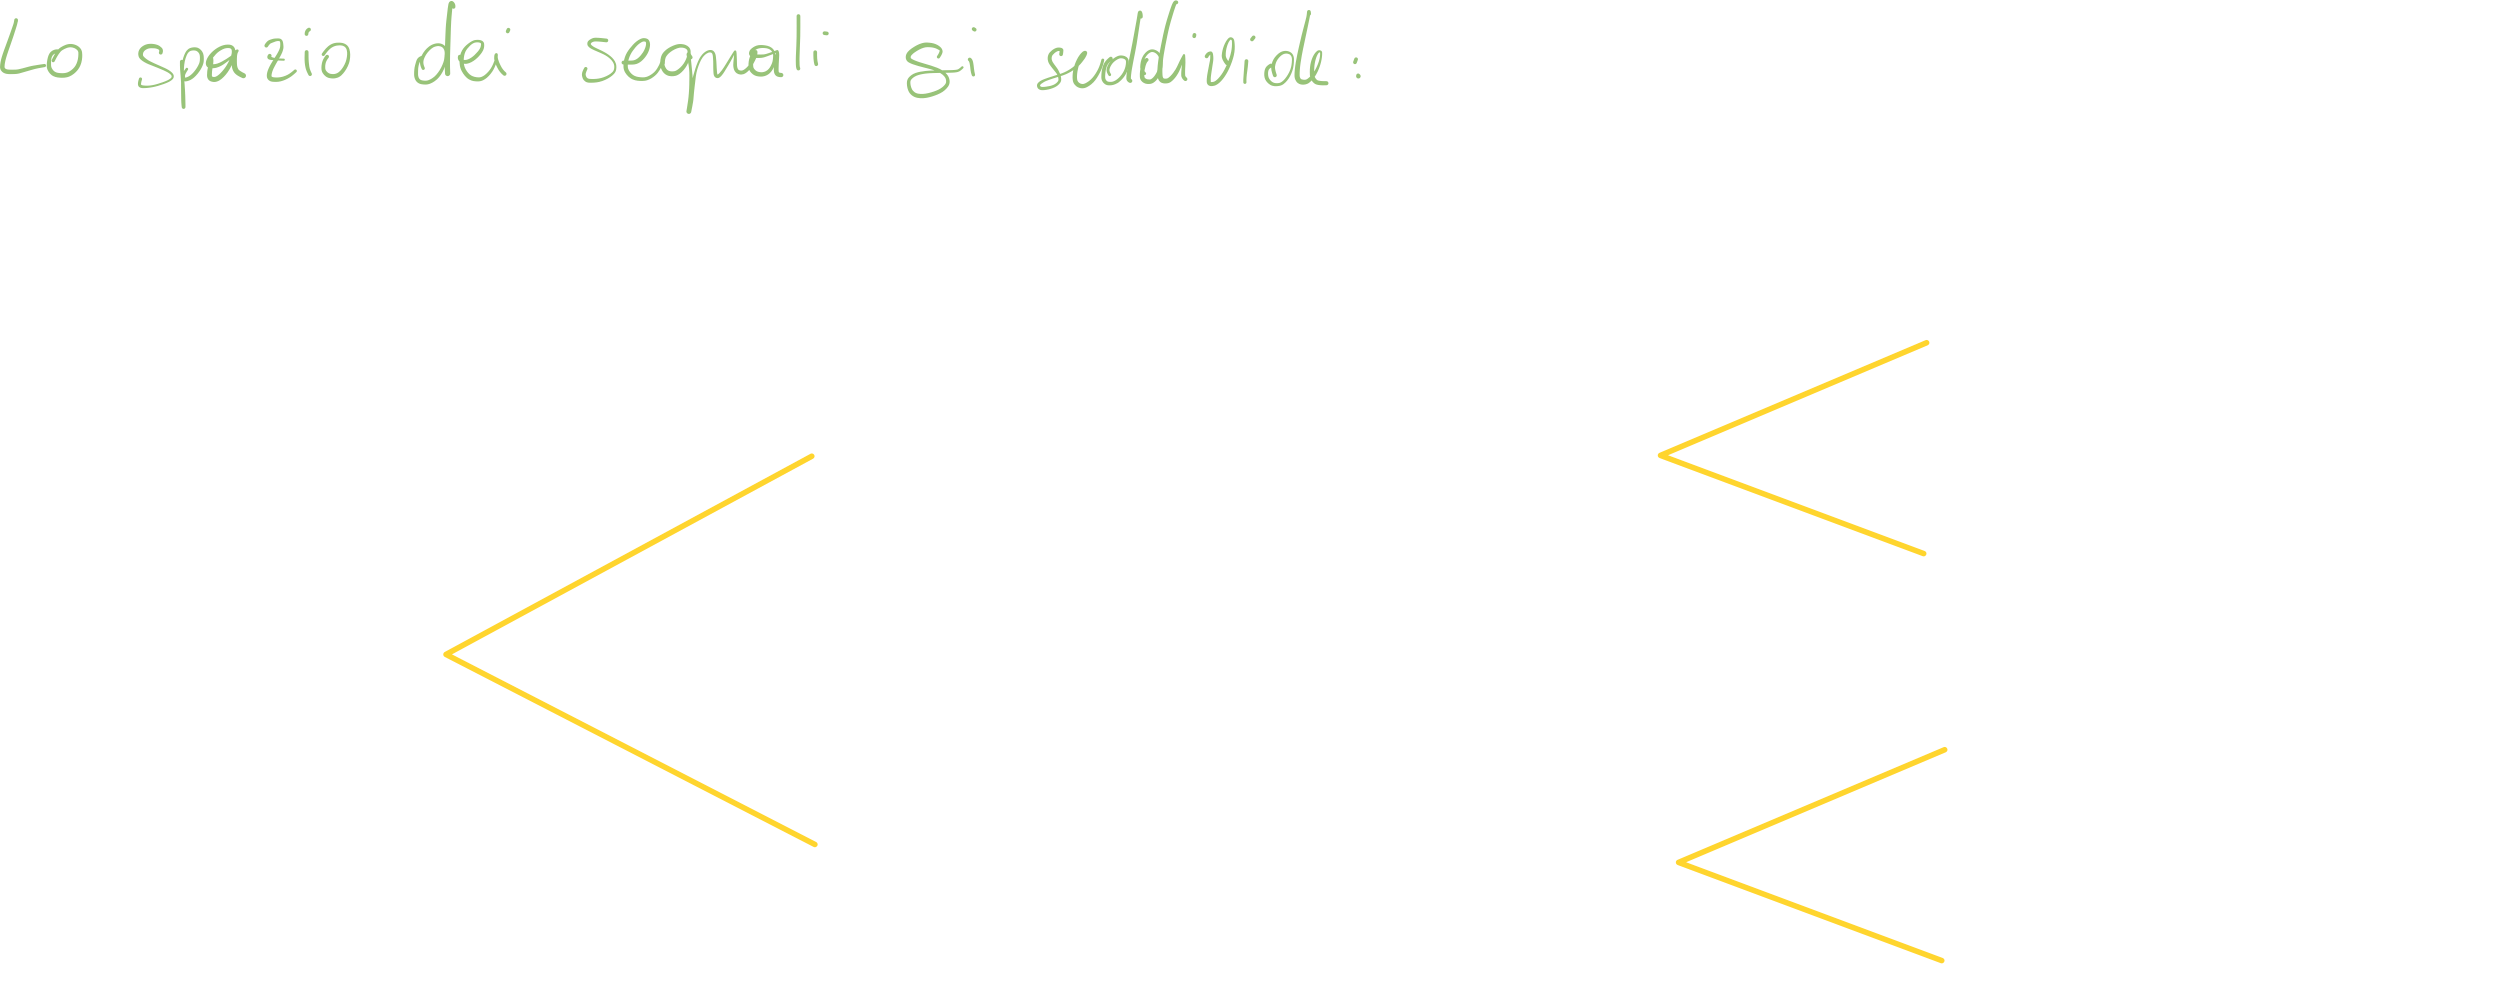 Lo spazio dei segnali si suddivide :